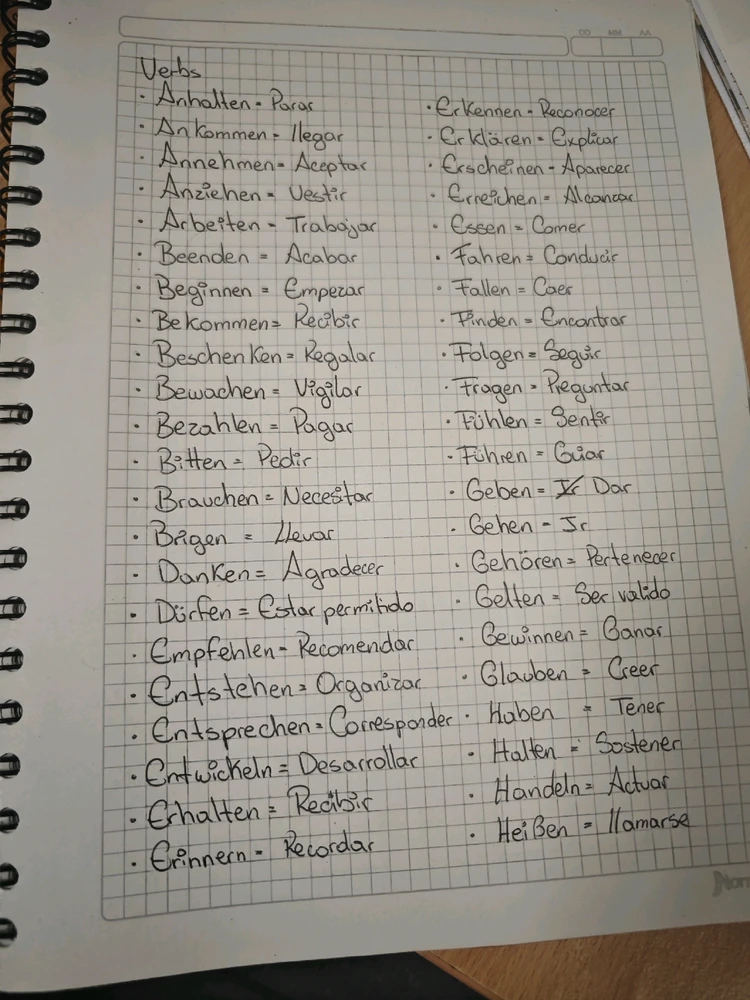 DD MM AA
Verbs
· Anhalten = Parar
· Ankommen = llegar
· Annehmen = Aceptar
· Anziehen = Vestir
· Arbeiten = Trabajar
· Beenden = Acabar
· Beginnen = Empezar
· Bekommen = Recibir
· Beschenken = Regalar
· Bewachen = Vigilar
· Bezahlen = Pagar
· Bitten = Pedir
· Brauchen = Necesitar
· Brigen = llevar
· Danken = Agradecer
· Dürfen = Estar permitido
· Empfehlen = Recomendar
· Entstehen = Organizar
· Entsprechen = Corresponder
· Entwickeln = Desarrollar
· Erhalten = Recibir
· Erinnern = Recordar
· Erkennen = Reconocer
· Erklären = Explicar
· Erscheinen = Aparecer
· Erreichen = Alcanzar
· Essen = Comer
· Fahren = Conducir
· Fallen = Caer
· Finden = Encontrar
· Folgen = Seguir
· Fragen = Preguntar
· Fühlen = Sentir
· Führen = Guiar
· Geben = Dar
· Gehen = Ir
· Gehören = Pertenecer
· Gelten = Ser valido
· Gewinnen = Ganar
· Glauben = Creer
· Haben = Tener
· Halten = Sostener
· Handeln = Actuar
· Heißen = llamarse